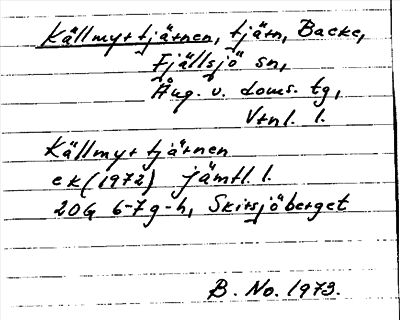 Källmyrtjärnen, tjärn, Backe,
Fjällsjö sn,
Ång. v. doms. tg,
Vtnl. l.
Källmyrtjärnen
ek (1972) jämtl. l.
20G 6-7g-h, Skirsjöberget
B. No. 1973.